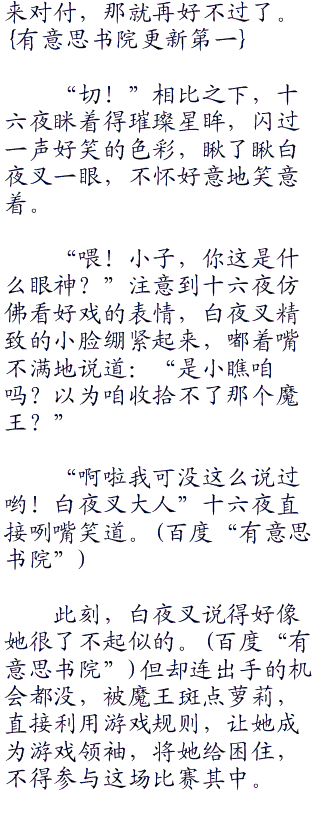 来对付，那就再好不过了。
{有意思书院更新第一}
“切！”相比之下，十
六夜眯着得璀璨星眸，闪过
一声好笑的色彩，瞅了瞅白
夜叉一眼，不怀好意地笑意
着。
“喂！小子，你这是什
么眼神？”注意到十六夜仿
佛看好戏的表情，白夜叉精
致的小脸绷紧起来，嘟着嘴
不满地说道：“是小瞧咱
吗？以为咱收拾不了那个魔
王？”
“啊啦我可没这么说过
哟！白夜叉大人”十六夜直
接咧嘴笑道。(百度“有意思
书院”)
此刻，白夜叉说得好像
她很了不起似的。(百度“有
意思书院”)但却连出手的机
会都没，被魔王斑点萝莉，
直接利用游戏规则，让她成
为游戏领袖，将她给困住，
不得参与这场比赛其中。